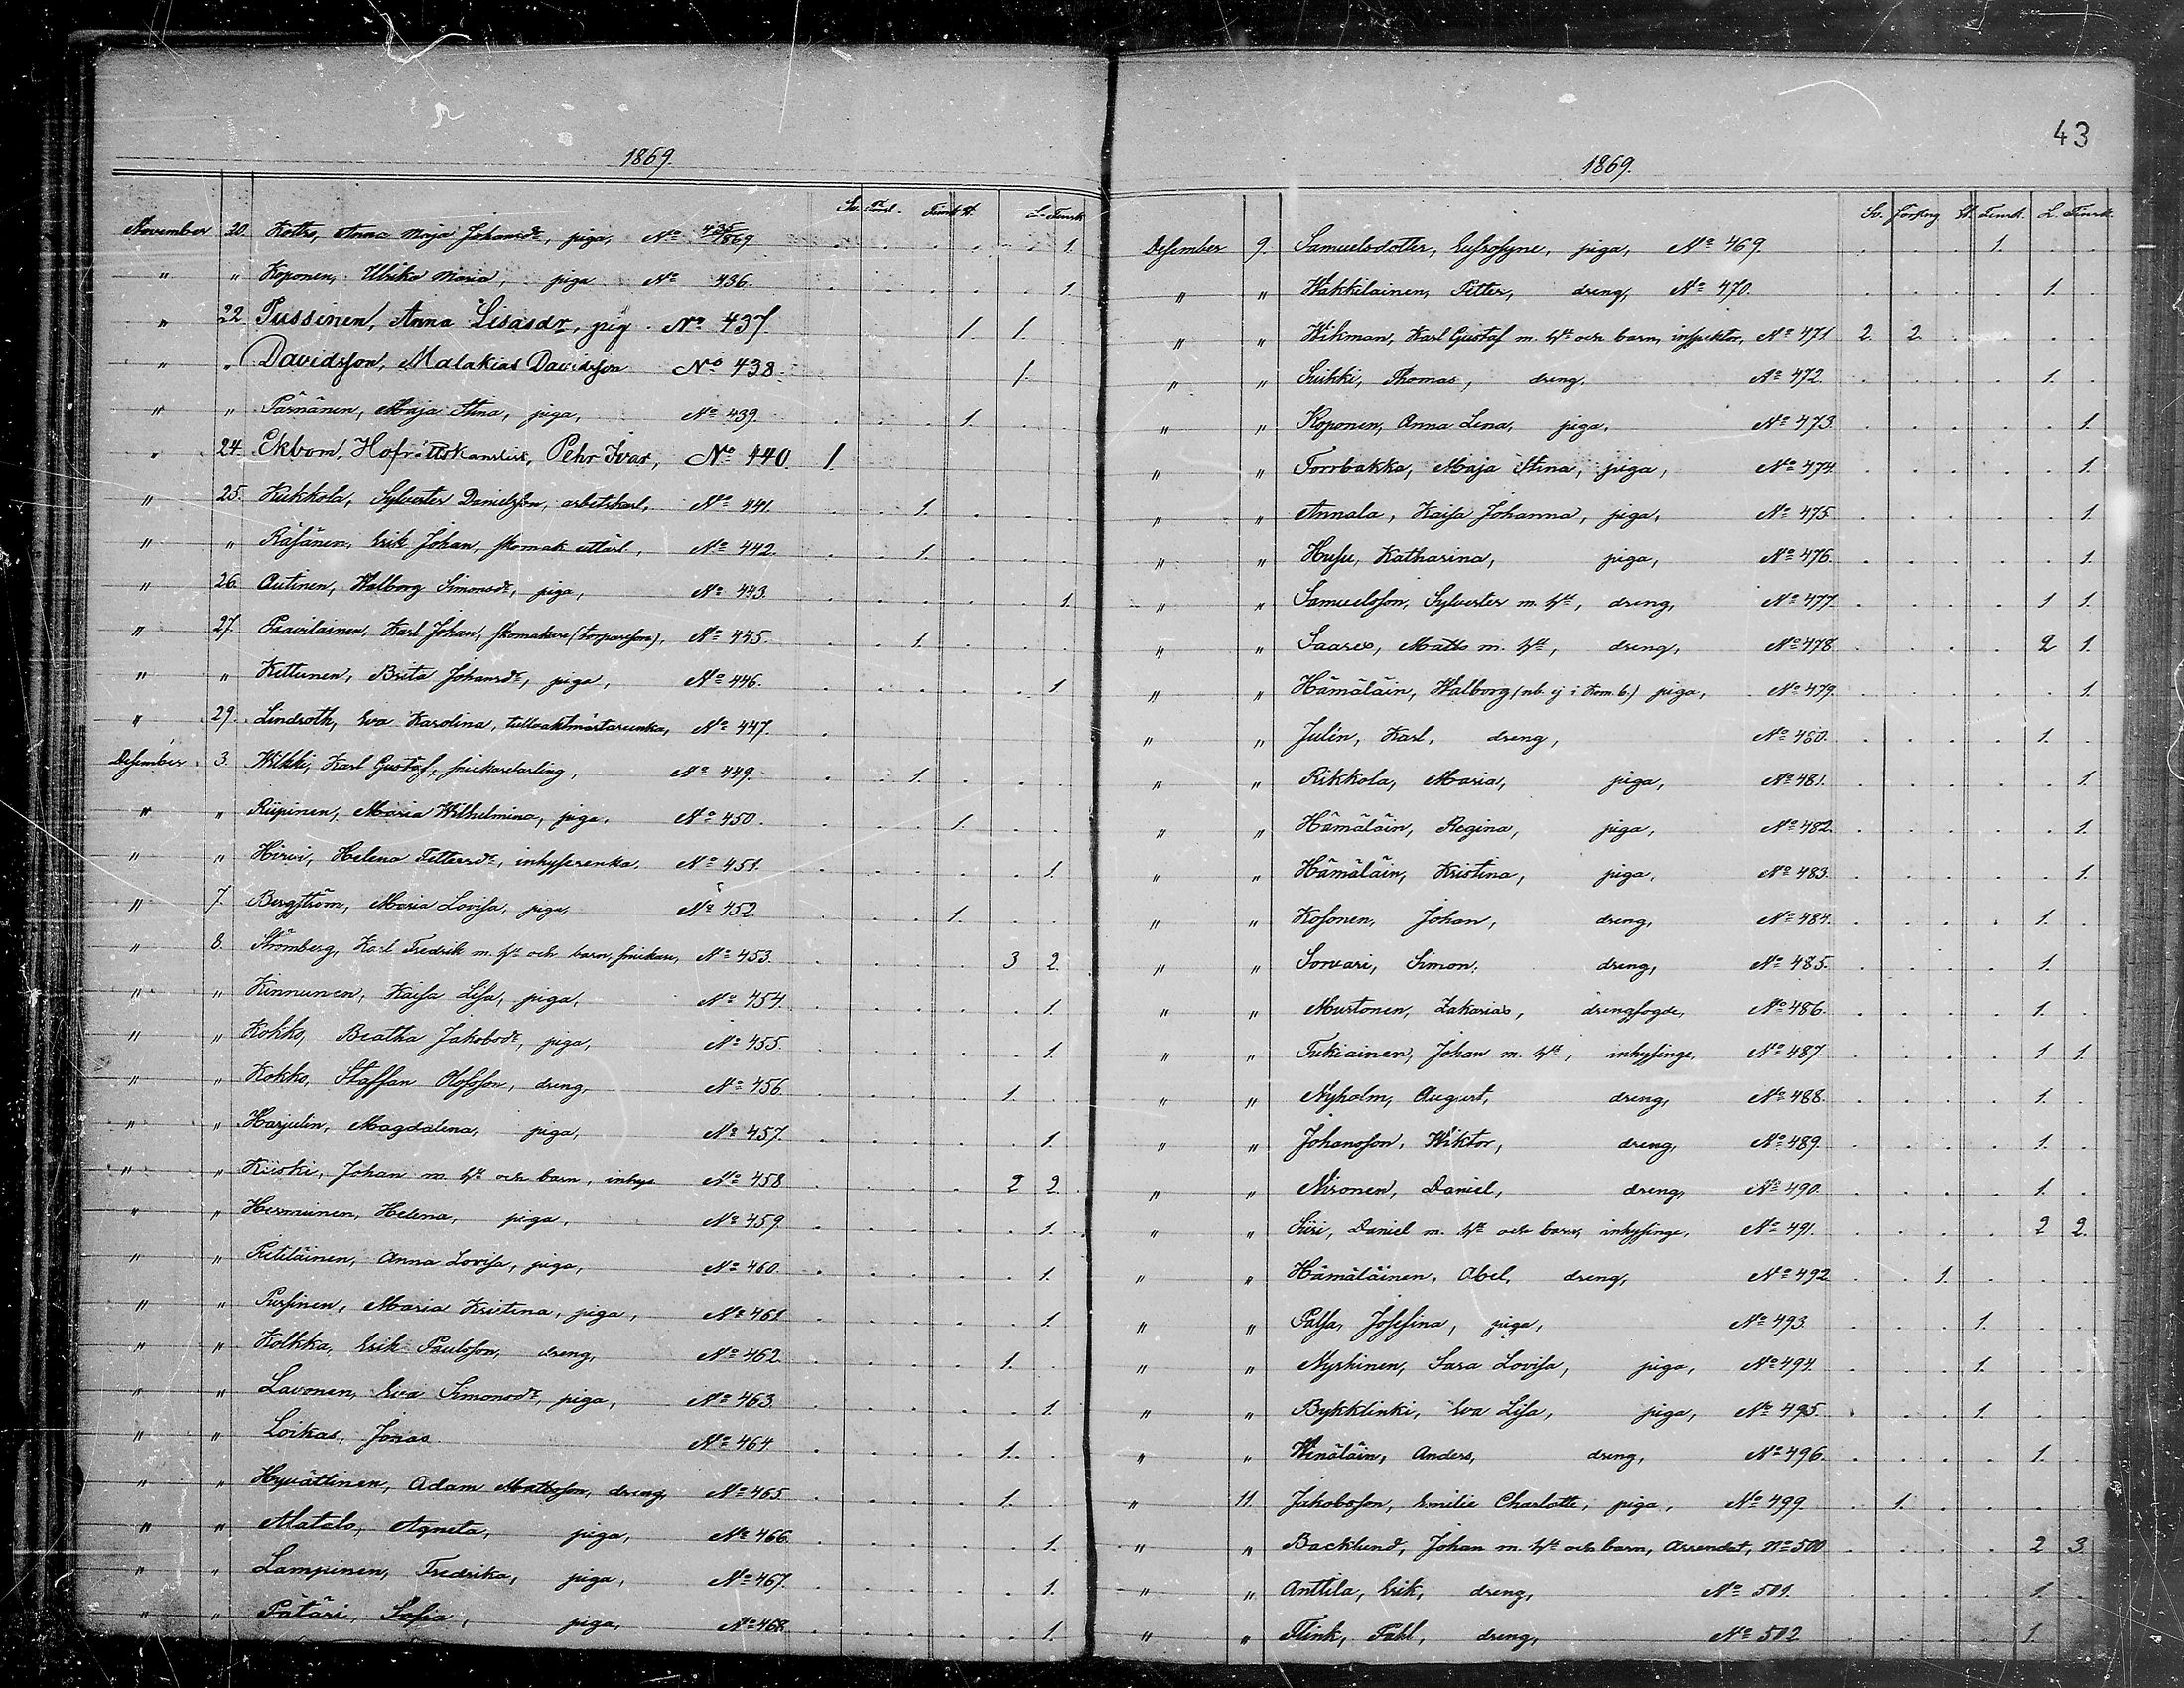 1869.
Sv. Förs. Finsk St. L. Finsk
November 20. Kotro, Anna Maja Johansdr, piga, No 435/1869 1.
" " Koponen, Ulrika Maria, piga No 436. 1.
" 22. Pussinen, Anna Lisasdr, pig. No 437. 1. 1.
" " Davidsson, Malakias Davidsson No 438. 1.
" " Pärnänen, Maja Stina, piga, No 439. 1.
" 24. Ekbom, Hofrättskanslist, Pehr Ivar, No 440. 1.
" 25. Kukkola, Sylvester Danielsson, arbetskarl, No 441. 1.
" " Räsänen, Erik Johan, skomak. No 442. 1.
" 26. Autinen, Walborg Simonsdr, piga, No 443. 1.
" 27. Paavilainen, Karl Johan, skomakare (torpareson), No 445. 1.
" " Kettunen, Brita Johansdr, piga, No 446. 1
" 29. Lindroth, Eva Karolina, tullvaktmästarenka, No 447.
December 3. Wilkki, Karl Gustaf, snickarelärling, No 449. 1.
" " Riipinen, Maria Wilhelmina, piga, No 450. 1.
" " Hirvi, Helena Pettersdr, inhyserenka, No 451. 1.
" 7. Bergström, Maria Lovisa, piga, No 452. 1.
" 8. Strömberg, Karl Fredrik m. hu och barn, snickare, No 453. 3 2.
" " Kinnunen, Kaisa Lisa, piga, No 454. 1.
" " Kokko, Beatha Jakobsdr, piga, No 455. 1.
" " Kokko, Staffan Olofsson, dreng, No 456. 1.
" " Harjulin, Magdalena, piga, No 457. 1.
" " Kiiski, Johan m. hu och barn, inhys No 458 2 2.
" " Hermunen, Helena, piga, No 459. 1.
" " Pietiläinen, Anna Lovisa, piga, No 460. 1.
" " Pursinen, Maria Kristina, piga, No 461 1.
" " Kolkka, Erik Paulsson, dreng, No 462. 1.
" " Lavonen, Eva Simonsdr, piga, No 463. 1.
" " Loikas, Jonas No 464 1.
" " Hyvättinen, Adam Mattsson, dreng, No 465. 1.
" " Matalo, Agneta, piga, No 466. 1.
" " Lampinen, Fredrika, piga, No 467. 1.
" " Pätäri, Sofia, piga, No 468. 1.
43
1869.
Sv. Forstng St. Finsk. L. Finsk.
December 9. Samuelsdotter, Eufrosyne, piga, No 469. 1.
" " Hakkilainen, Petter, dreng, No 470. 1.
" " Wikman, Karl Gustaf m. hu och barn, inspektor, No 471 2. 2.
" " Suikki, Thomas, dreng. No 472. 1.
" " Koponen, Anna Lena, piga, No 473. 1.
" " Torrbakka, Maja Stina, piga, No 474. 1.
" " Annala, Kaisa Johanna, piga, No 475. 1.
" " Husu, Katharina, piga, No 476. 1.
" " Samuelsson, Sylvester m. hu, dreng, No 477. 1 1.
" " Saares, Matts m. hu, dreng, No 478. 2 1.
" " Hämäläin, Walborg (nb. ej i Kom. 6.) piga, No 479. 1.
" " Julin, Karl, dreng, No 480. 1.
" " Rikkola, Maria, piga, No 481. 1.
" " Hämäläin, Regina, piga, No 482. 1.
" " Hämäläin, Kristina, piga, No 483. 1.
" " Kosonen, Johan, dreng, No 484. 1.
" " Sorvari, Simon, dreng, No 485. 1.
" " Murtonen, Zakarias, drengfogde, No 486. 1.
" " Tukiainen, Johan m. hu, inhysinge, No 487. 1 1.
" " Nyholm, August, dreng, No 488. 1.
" " Johansson, Wiktor, dreng, No 489. 1.
" " Nironen, Daniel, dreng, No 490. 1.
" " Siiri, Daniel m. hu och barn, inhysinge, No 491. 2 2.
" " Hämäläinen, Abel, dreng, No 492 1.
" " Palsa, Josefina, piga, No 493. 1.
" " Nyrhinen, Sara Lovisa, piga, No 494. 1.
" " Bykklinki, Eva Lisa, piga, No 495. 1.
" " Wenäläin, Anders, dreng, No 496. 1.
" 11. Jakobsson, Emilie Charlotte, piga, No 499. 1.
" " Backlund, Johan m. hu och barn, Arrendat, No 500 2 3.
" " Anttila, Erik, dreng, No 501. 1.
" " Flink, Pahl, dreng, No 502 1.